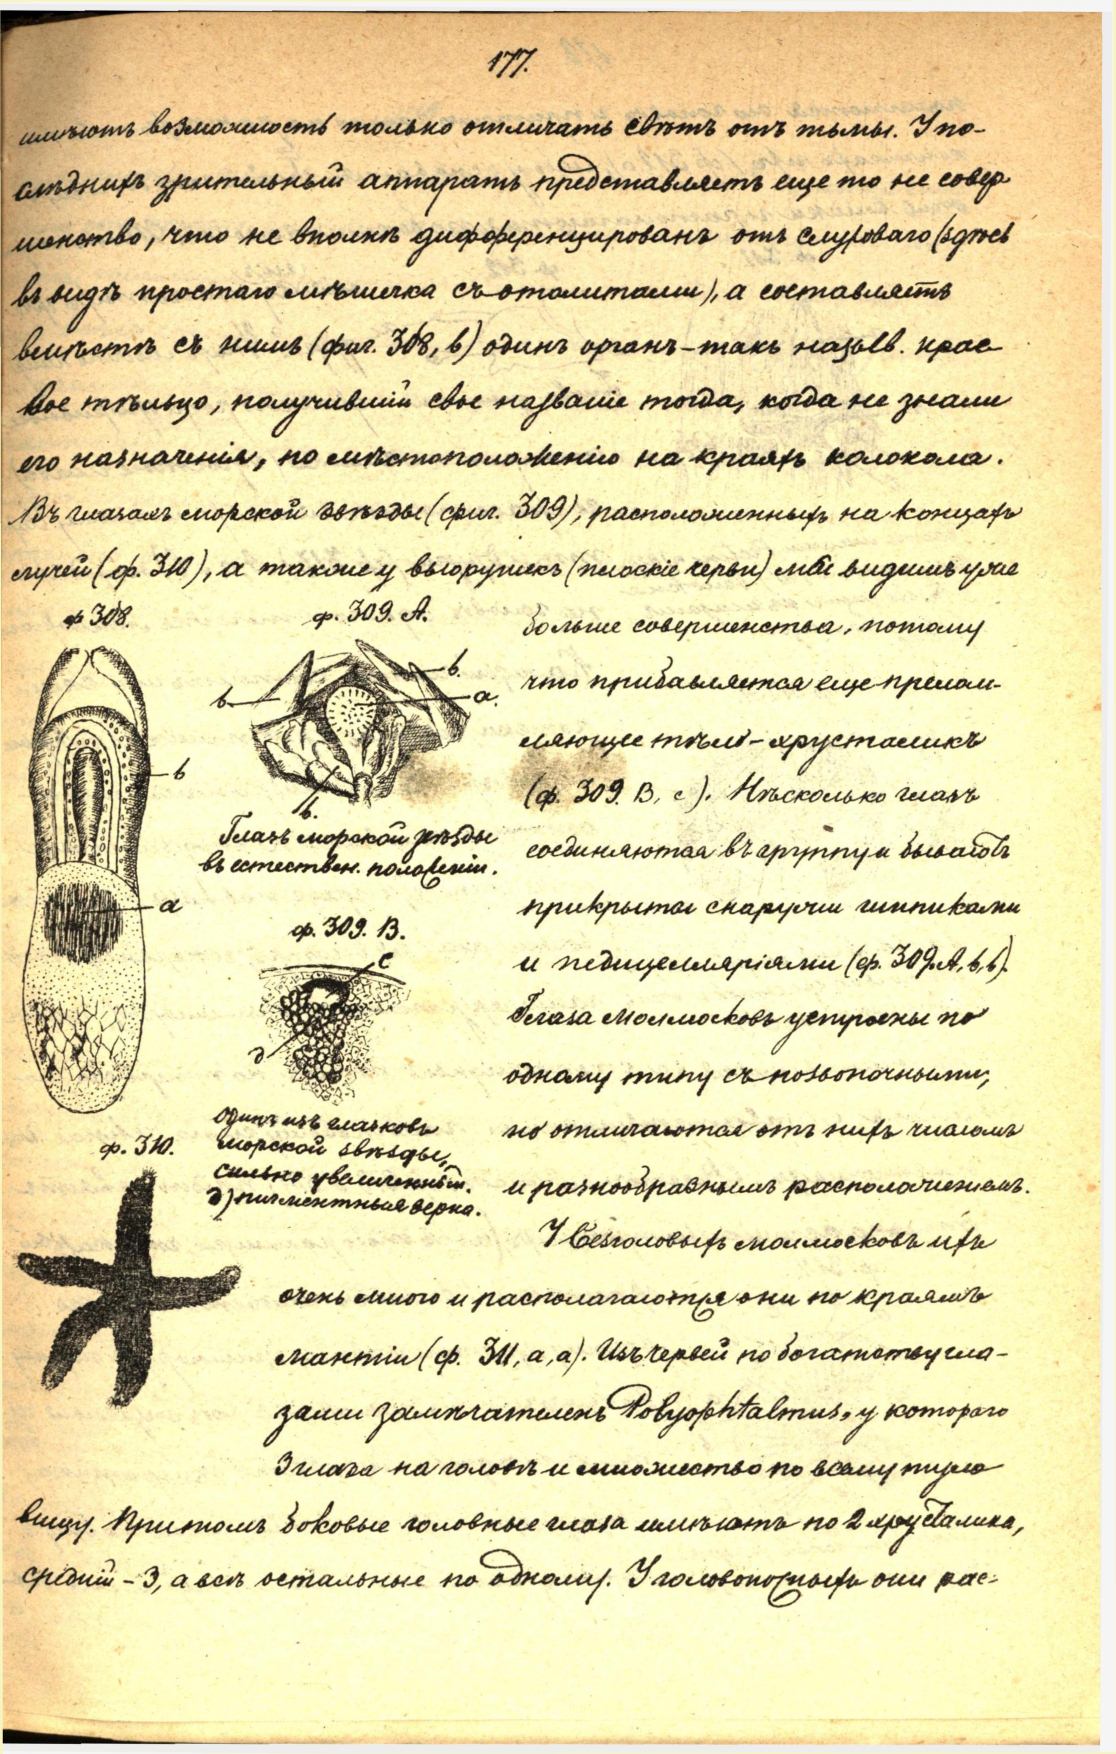 177.
имѣютъ возможность только отличать свѣтъ отъ тьмы. У по-
слѣднихъ зрительный аппаратъ представляетъ еще то не совер
шенство, что не вполнѣ дифференцированъ отъ слуховаго (здѣсь
въ видѣ простаго мѣшечка съ отолитами), а составляетъ
вмѣстѣ съ нимъ (фиг. 308, b) одинъ органъ - такъ назыв. крае
вое тѣльцо, получившій свое названіе тогда, когда не знали
его назначенія, по мѣстоположенію на краяхъ колокола.
Въ глазахъ морской звѣзды (фиг. 309), расположенныхъ на концахъ
лучей (ф. 310), а также у (плоскіе черви) мы видимъ уже
ф 308.
ф. 309. А.
b
b.
a.
b.
b
a
Глазъ морской звѣзды
въ естествен. положеніи.
ф. 309. В.
c
д
одинъ изъ глазковъ
морской звѣзды,
сильно увеличенный.
д) пигментныя зерна.
ф. 310.
больше совершенства, потому
что прибавляется еще прелом-
ляющее тѣло - хрусталикъ
(ф. 309. В, с). Нѣсколько глазъ
соединяются въ группу и бываютъ
прикрыты снаружи шипиками
и педицелляріями (ф. 309. А, b, b).
Глаза моллюсковъ устроены по
одному типу съ позвоночными,
но отличаются отъ нихъ числомъ
и разнообразнымъ расположеніемъ.
У безголовыхъ моллюсковъ ихъ
очень много и располагаются они по краямъ
мантіи (ф. 311, а, а). Изъ червей по богатству гла-
зами замѣчателенъ Polyophtalmus, у котораго
3 глаза на головѣ и множество по всему туло
вищу. Притомъ боковые головные глаза имѣютъ по 2 хрусталика,
средній - 3, а всѣ остальные по одному. У головоногихъ они рас-